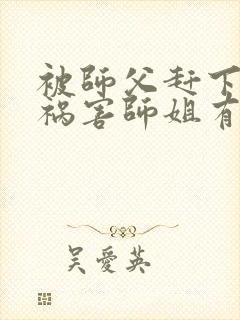 被師父赶下
祸害師姐有
吴愛英